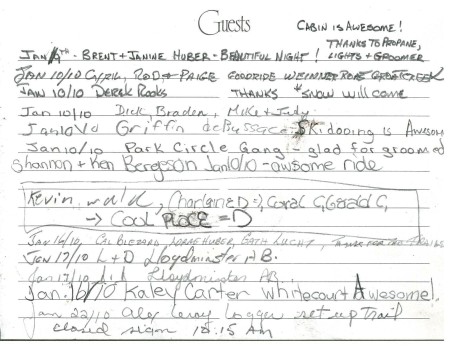 Guests
CABIN IS AWESOME!
THANKS TO PROPANE,
LIGHTS + GROOMER
JAN 9TH - BRENT + JANINE HUBER - BEAUTIFUL NIGHT!
JAN 10/10 CYRIL, ROD + PAIGE GOOD RIDE
JAN 10/10 DEREK ROOKS THANKS SNOW WILL COME
Jan 10/10 Dick, Braden, Mike + Judy
Jan 10/10 Griffin SKidooing is Awesom
Jan 10/10 Park Circle Gang - glad for groomed
Shannon + Ken Bergeson Jan 10/10 - awsome ride
Kevin wald, Charlaine D =), Coral G, Gerald G,
-> COOL PLACE =D
Jan 16/10,
JAN 17/10 L + D Lloydminster AB.
Jan 17/10 Lloydminster AB.
Jan. 16/10 Kaley Carter Whitecourt Awesome!
Jan 22/10 Alex Leroy Logger set up Trail
closed sign 10:15 AM